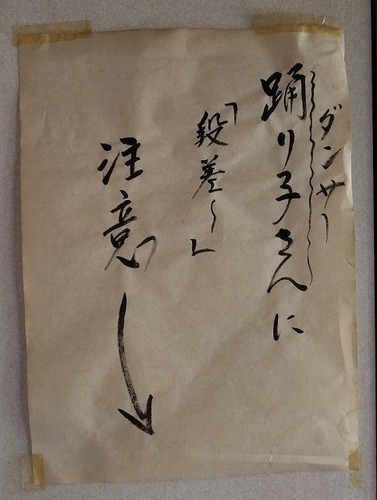 ダンサー
踊り子さんに
「段差〜」
注意